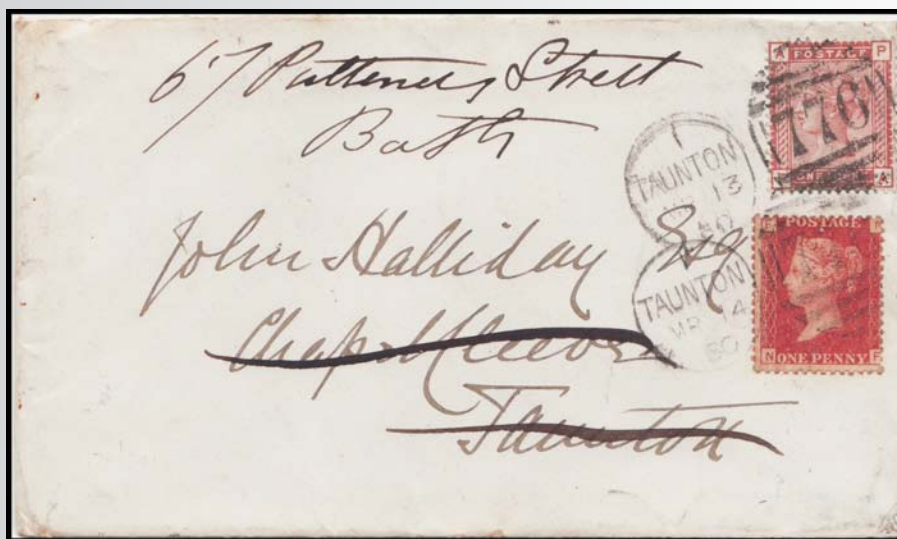 67 Pulteney Street
Bath
John Halliday Esq
Chapel Cleeve
Taunton
A POSTAGE P
776
A
TAUNTON
13
80
TAUNTON
MR 14
80
POSTAGE
N ONE PENNY F